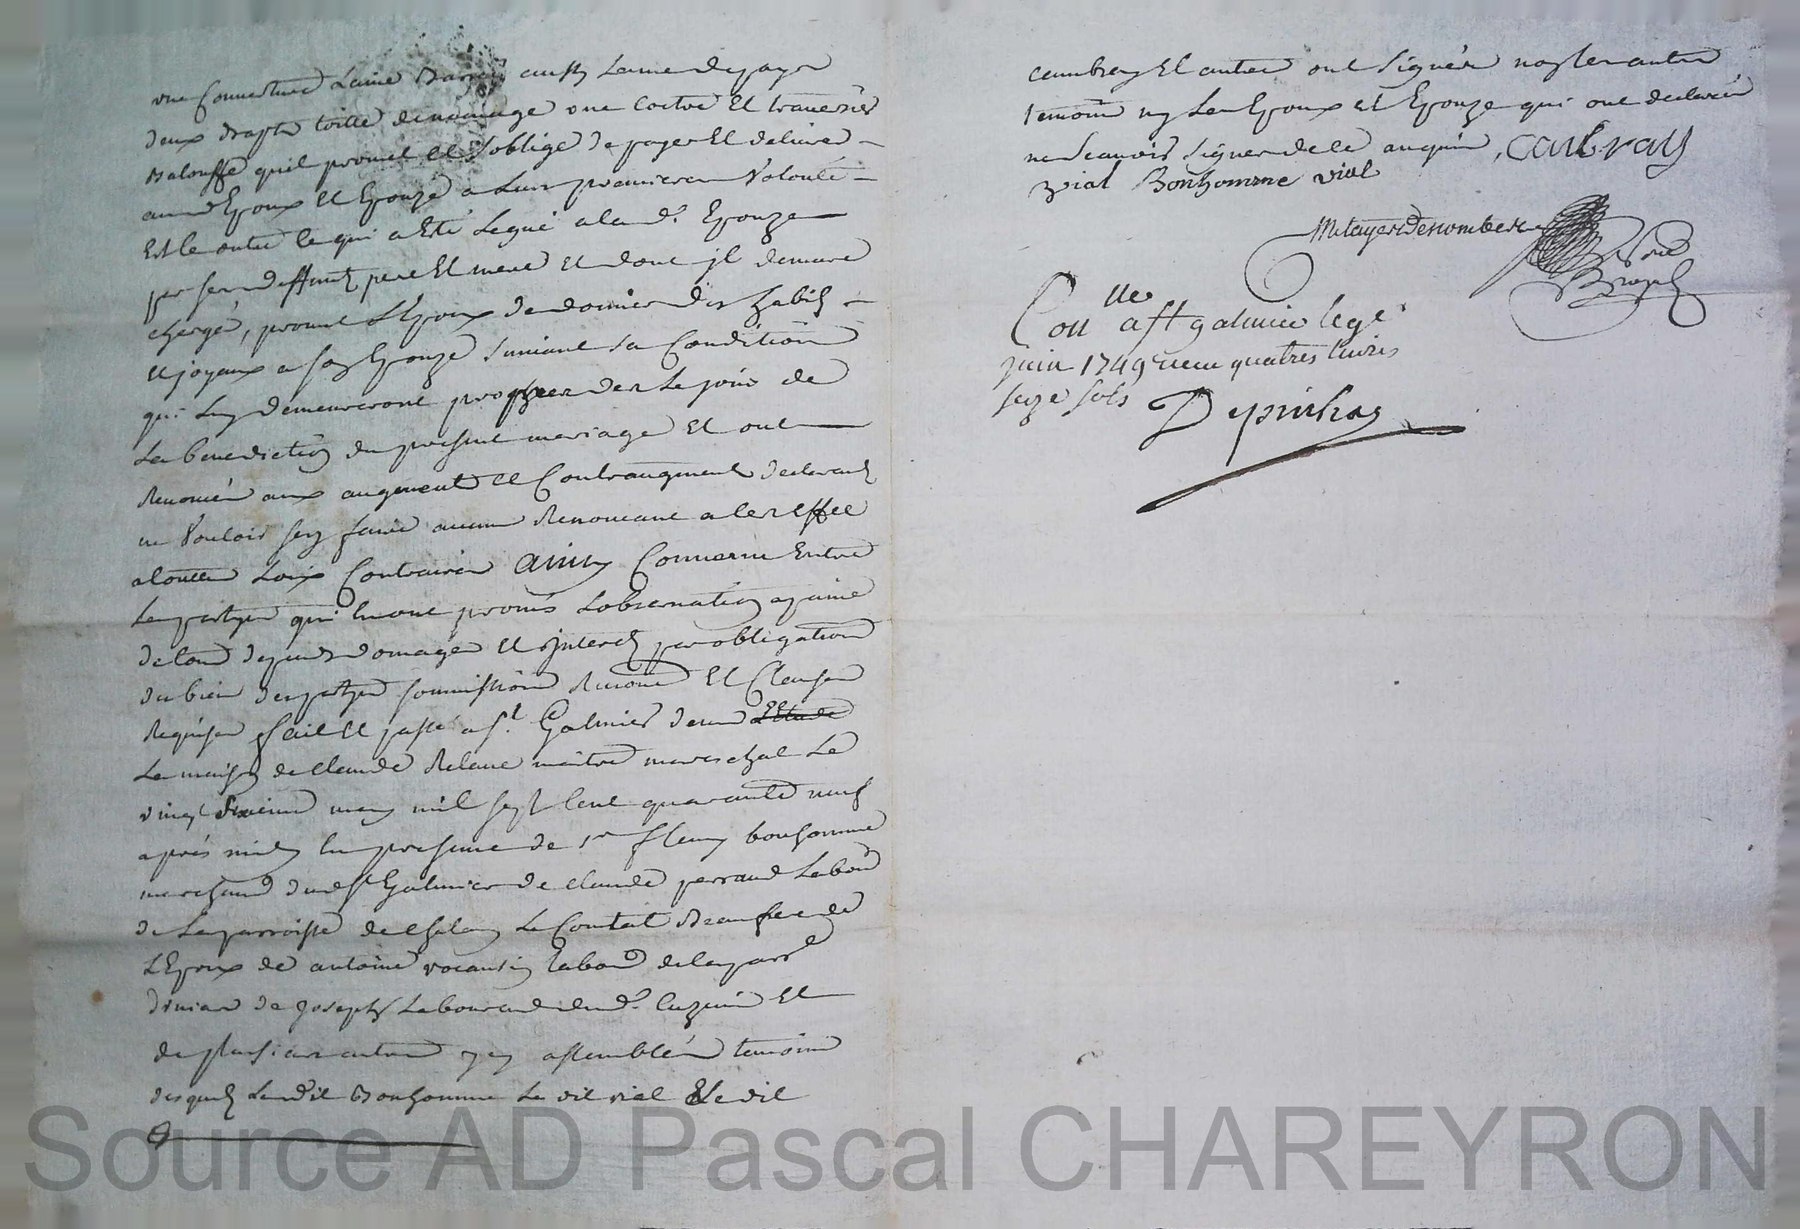 une Couverture Laine aussy Laine du pays
deux draptz toille deménage une coitre et traversier
Balouffe quil promet et s'oblige de payer et delivrer
aud Epoux et Epouze a leur premiere Volonté
Et le outre ce qui a Eté Legué a la de. Epouze
par ses deffuntz pere et mere et dont jl demeure
chargé, promet L'Epoux de donner des habitz
et joyaux a son Epouze suivant sa Condition
qui Luy demeureront propres des Le jour de
La benediction du present mariage Et ont
Renoncés aux augment et Contraugment declarant
ne Vouloir sen faire aucun Renoncant a cet effet
a toutes Loix Contraires Ainsy Convenu Entre
Les partyes qui En ont promis Lobservation a peine
de tous depens domages et Interetz par obligation
du bien des partyes soummissions Renons et Clauses
Requises fait et passé a St. Galmier dans Etude
La maison de Claude Relave maitre mareschal Le
vingt may mil sept Cent quarante neuf
après midy En presence de Sr fleury bonhomme
marchand dud St Galmier de Claude perraud Labour
de La parroisse de Chelan Le Contal Beaufrere de
L'Epoux de antoine vocanson Labour de la parre
de Joseph Labouré dud. Cuzieu et
de plusieurs autres assemblés temoins
desquelz Led. Bonhomme Le dit vial Et le dit
cambray Et autres ont signés non les autres
temoins ny Les Epoux et Epouze qui ont declarés
ne scavoir signer de ce enquis, caubray
vial Bonhomme vial
Metayer Descombes
Conlle a St galmier le 9e
juin 1749 receu quatres livres
seze sols
Depinhas
Source AD Pascal CHAREYRON